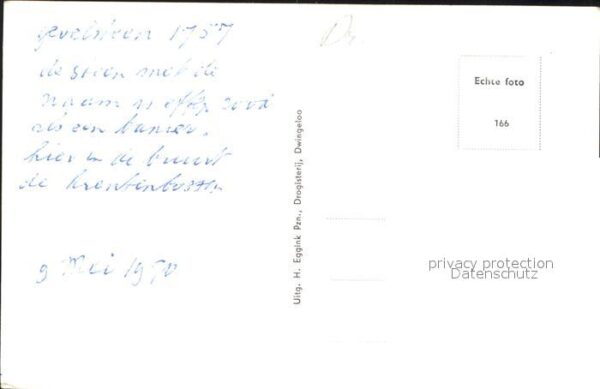 gevelsteen 1757
de steen met de
naam is
als een banier.
hier in de buurt
de krentenbossen
9 Mei 1970
Dr.
Uitg. H. Eggink Pzn., Drogisterij, Dwingeloo
Echte foto
166
privacy protection
Datenschutz